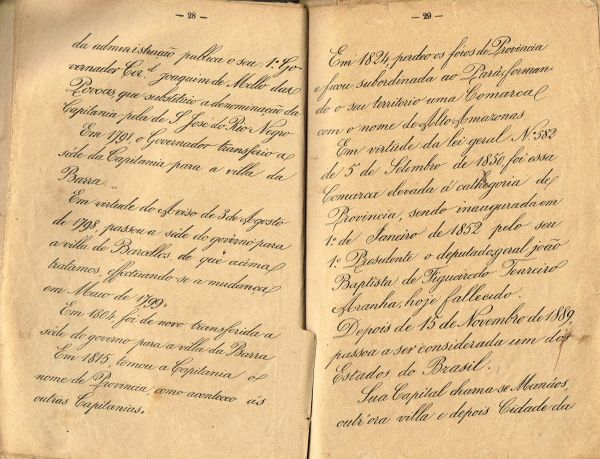 — 28 —
da administração publica o seu 1º Go-
vernador Cor.el Joaquim de Mello das
Povoas, que substitrio a denominação da
Capitania pela de S José do Rio Negro
Em 1791, o Governador transferio a
séde da Capitania para a villa da
Barra.
Em virtude do Aviso de 3 de Agosto
de 1798, passou a séde do governo para
a villa de Barcellos, de que acima
tratamos, effectuando-se a mudança
em Maio de 1799.
Em 1804 foi de novo transferida a
séde do governo para a villa da Barra
Em 1815, tomou a Capitania o
nome de Provincia como aconteceo ás
outras Capitanias.
— 29 —
Em 1824, perdeo os fóros de Provincia
e ficou subordinada ao Pará, forman-
do o seu territorio uma Comarca
com o nome de Alto-Amazonas
Em virtude da lei geral Nº 582
de 5 de Setembro de 1850, foi essa
Comarca elevada á cathegoria de
Provincia, sendo inaugurada em
1º de Janeiro de 1852 pelo seu
1º Presidente o deputado geral João
Baptista de Figueiredo Tenreiro
Aranha, hoje fallecido.
Depois de 15 de Novembro de 1889,
passou a ser considerada um dos
Estados do Brasil.
Sua Capital chama-se Manáos,
outr'ora villa e depois Cidade da